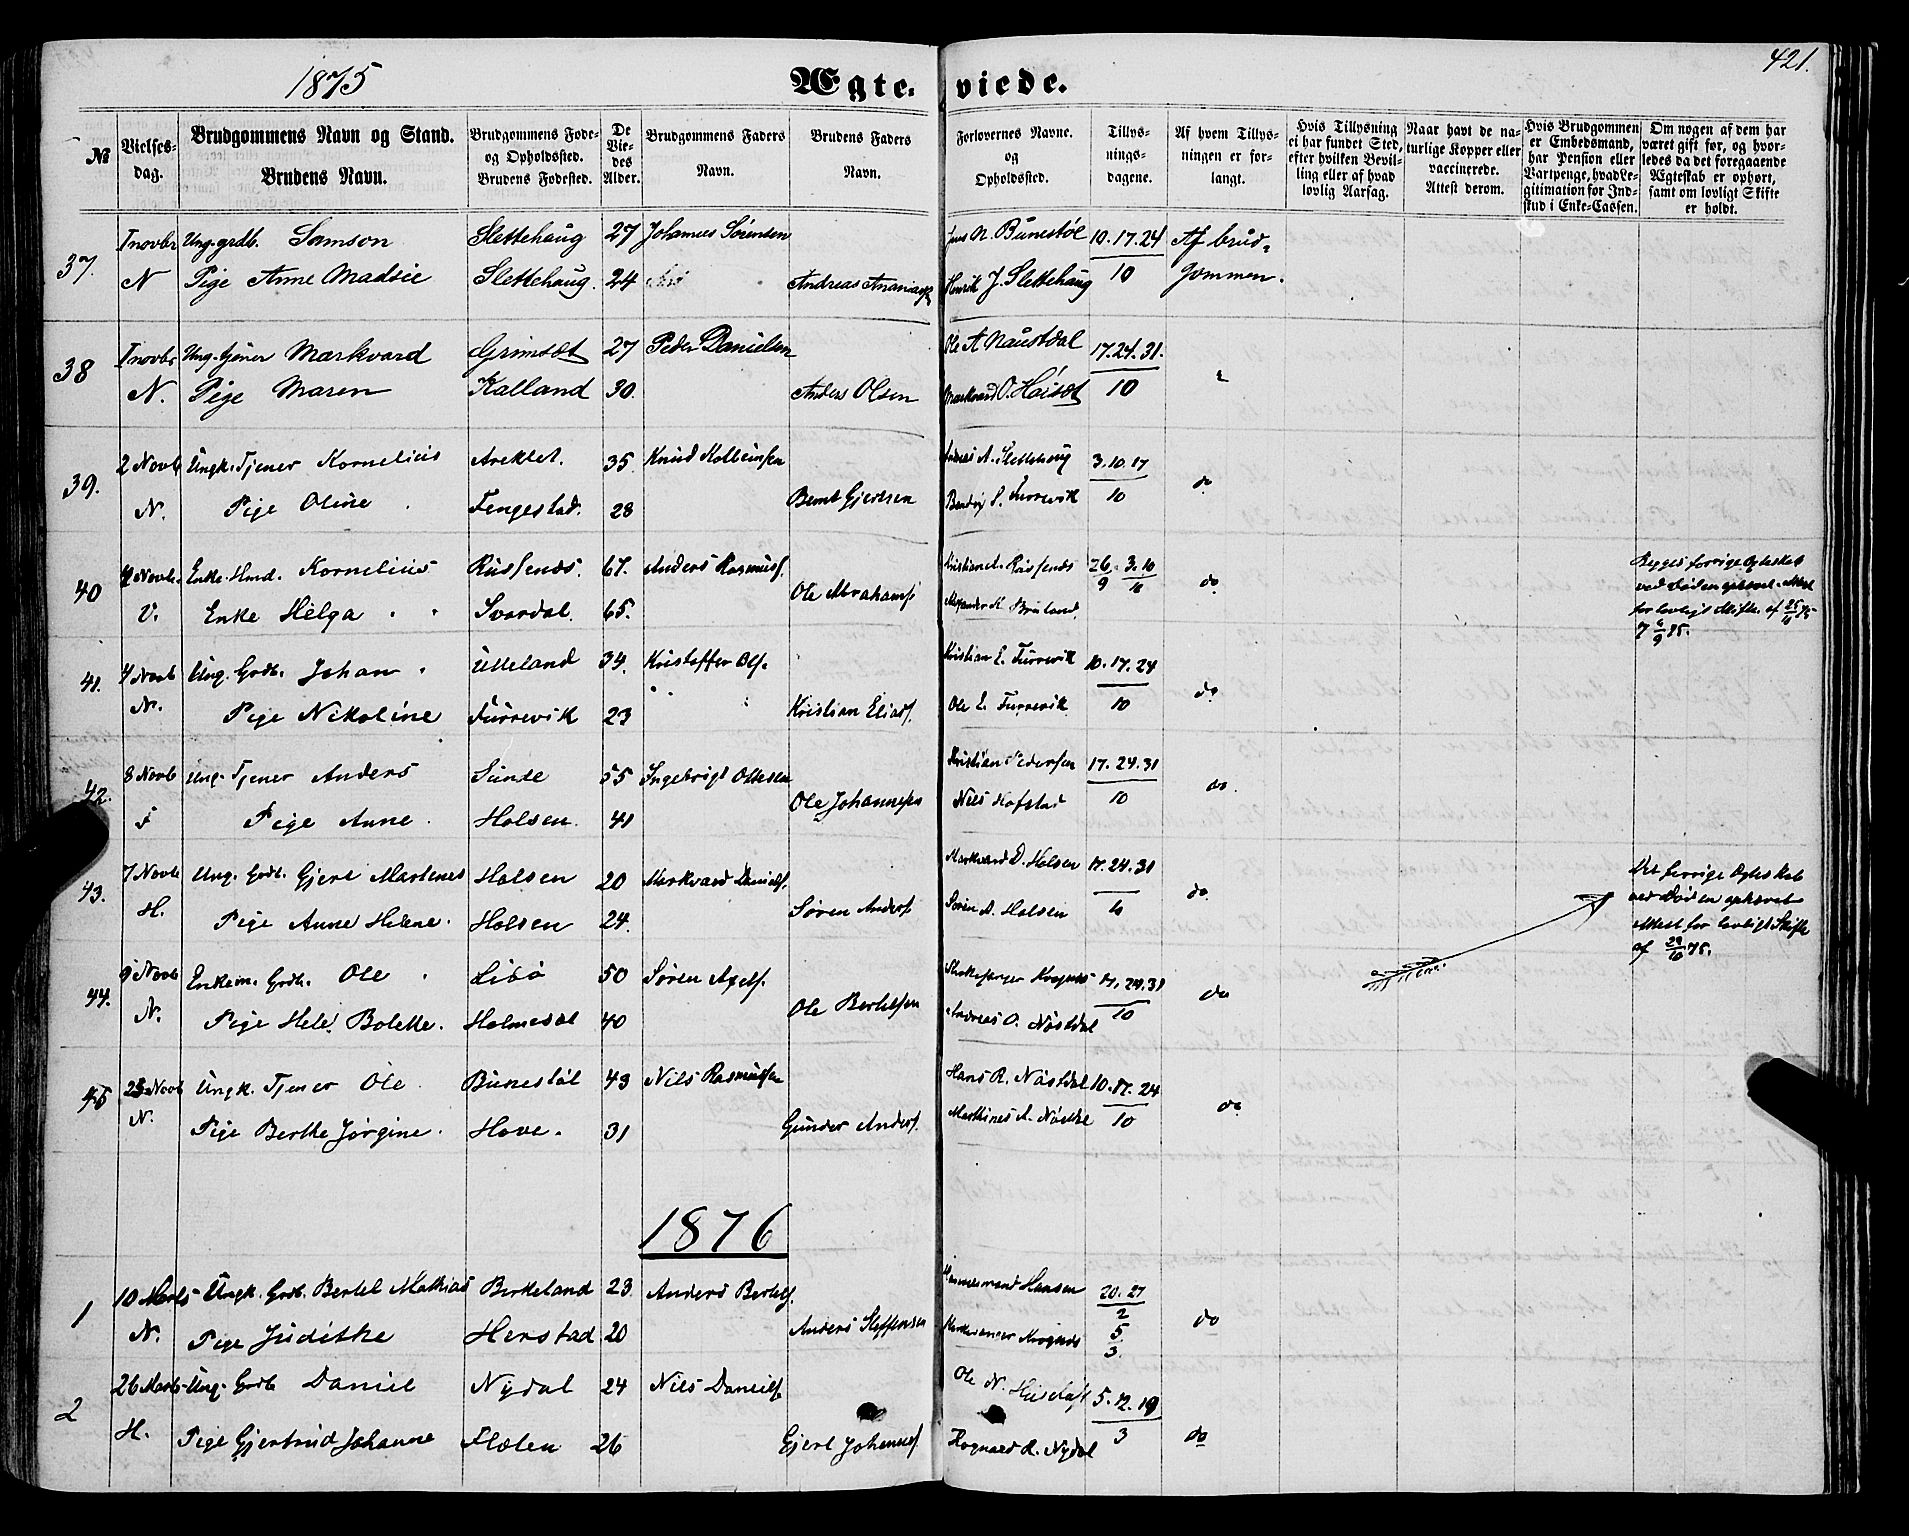 1875 Ægte- viede. 421.
№ Vielses-dag. Brudgommens Navn og Stand. Brudens Navn. Brudgommens Føde- og Opholdssted. Brudens Fødested. De Vie-des Alder. Brudgommens Faders Navn. Brudens Faders Navn. Forlovernes Navne. og Opholdssted. Tillys-nings-dagene. Af hvem Tillys-ningen er for-langt. Hvis Tillysning ei har fundet Sted, efter hvilken Bevil-ling eller af hvad lovlig Aarsag. Naar havt de na-turlige Kopper eller vaccinerede. Attest derom. Hvis Brudgommen er Embedsmand, har Pension eller Vartpenge, hvad Le-gitimation for Ind-skud i Enke-Cassen. Om nogen af dem har været gift før, og hvor-ledes da det foregaaende Ægteskab er ophørt, samt om lovligt Skifte er holdt.
37. 1 novbr Ung. grdb. Samson Slettehaug 27 Johannes Sørensen Jens N. Bunestøl 10.17.24 Af brud-
N Pige Anne Madsie Slettehaug. 24 Andreas Ananias Henrik J. Slettehaug 10 gommen.
38 1 novbr Ung. tjener Markvard Grimset 27 Peder Danielsen Ole A Naustdal 17.24.31.
N. Pige Maren Kalland 30. Anders Olsen Markvard O. Høiset 10 "
39. 2 Novb Ungk. Tjener Kornelius Areklet. 35. Knud Kolbeinsen Andreas A. Slettehaug 3.10.17 do
N. Pige Oline Fengestad. 28 Bernt Gjertsen Bendix S. Furrevik 10
40 4 Novb. Enke. Hmd. Kornelius Russenes. 67. Anders Rasmuss. Kristian A. Russenes 26/9 3.10/10 do
V. Enke Helga Svardal 65. Ole Abrahams Alexander K. Bruland
Begges forrige Egteskab
ved Døden ophævet. Attest
for lovligt Skifte af 25/10 75
41. 4 Novb Ung. Grdb. Johan Ulleland 34. Kristoffer Ols. Kristian E. Furrevik 10.17.24 do
N. Pige Nikoline Furrevik 23 Kristian Elias. Ole E. Furrevik 10
42. 8 Novb Ung. Tjener Anders Sunde 55 Ingebrigt Ottesen Kristian Pedersen 17.24.31 do.
F Pige Anne Holsen. 41 Ole Johannessen Nils Hafstad 10
43. 7 Novb Ung. Grdb. Gjert Martenes Holsen 20 Markvard Daniels. Markvard D. Holsen 17.24.31 do
H. Pige Anne Helene. Holsen 24. Søren Anders. Søren A. Holsen 10
Det forrige Egteskab
ved Døden ophævet
Attest for lovligt Skifte
af 29/10 75.
44. 9 Novb Enkem. Grdb. Ole Libø 50 Søren Axels. 17.24.31 do
N. Pige Hele. Bolette. Holmedal 40 Ole Bertelsen Andreas O. Nøstdal 10
45 23 Novb Ungk. Tjener Ole Bunestøl 43 Nils Rasmussen Hans R. Nøstdal 10.17.24 do
N. Pige Berthe Jørgine. Hove. 31 Gunder Anders. Marthines A. Nøstke 10
1876
1 10 Marts Ungk. Grdb. Bertel Mathias Birkeland 23. Anders Bertels. Hansen 20.27/2 do
N. Pige Judithe Herstad 20 Anders Steffensen Kirkesanger Krognes 5/3.
2 26 Marts Ung. Grdb Daniel Nydal 24 Nils Daniels. Ole N. 5.12.19
H. Pige Gjertrud Johanne Flølen 26 Gjert Johannes. Rognald R. Nydal 3 do